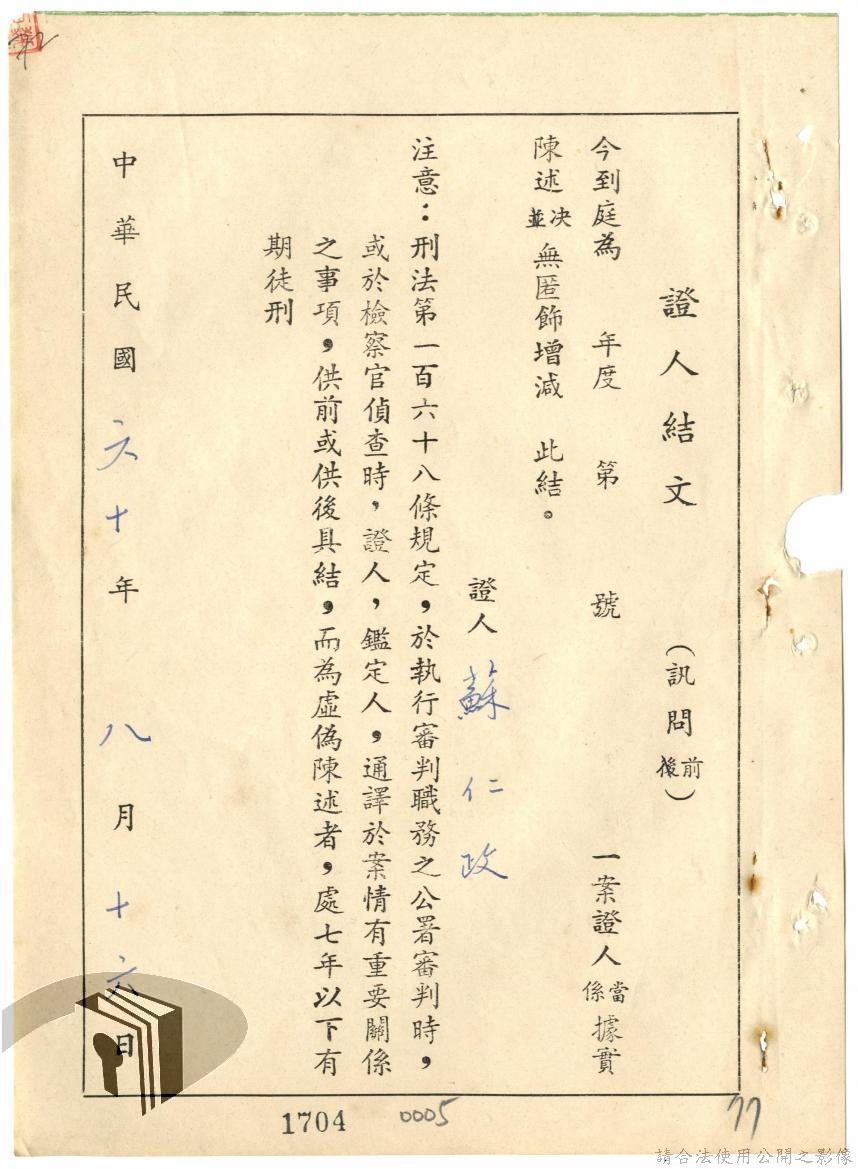 證人結文（訊問前後）
今到庭為　年度　第　號　一案證人當係據實
陳述並決無匿飾增減　此結。
證人　蘇仁政
注意：刑法第一百六十八條規定，於執行審判職務之公署審判時，
或於檢察官偵查時，證人，鑑定人，通譯於案情有重要關係
之事項，供前或供後具結，而為虛偽陳述者，處七年以下有
期徒刑
中華民國六十年八月十六日
1704
0005
77
請合法使用公開之影像